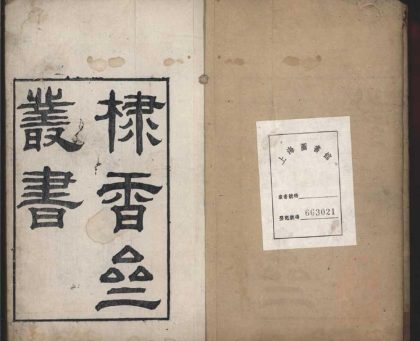 棣香亝
叢書
上海圖書館
索書號碼
登記號碼 663021